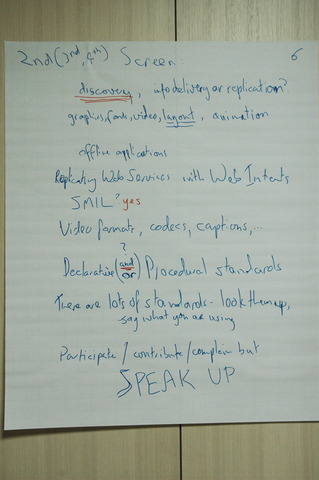 2nd (3rd, 4th) Screen:
6
discovery, info delivery or replication?
graphics, fonts, video, layout, animation
offline applications
Replacing Web Services with Web Intents
SMIL? yes
Video formats, codecs, captions,...
?
Declarative (and/or) Procedural standards
There are lots of standards - look them up,
say what you are using
Participate / contribute / complain but
SPEAK UP